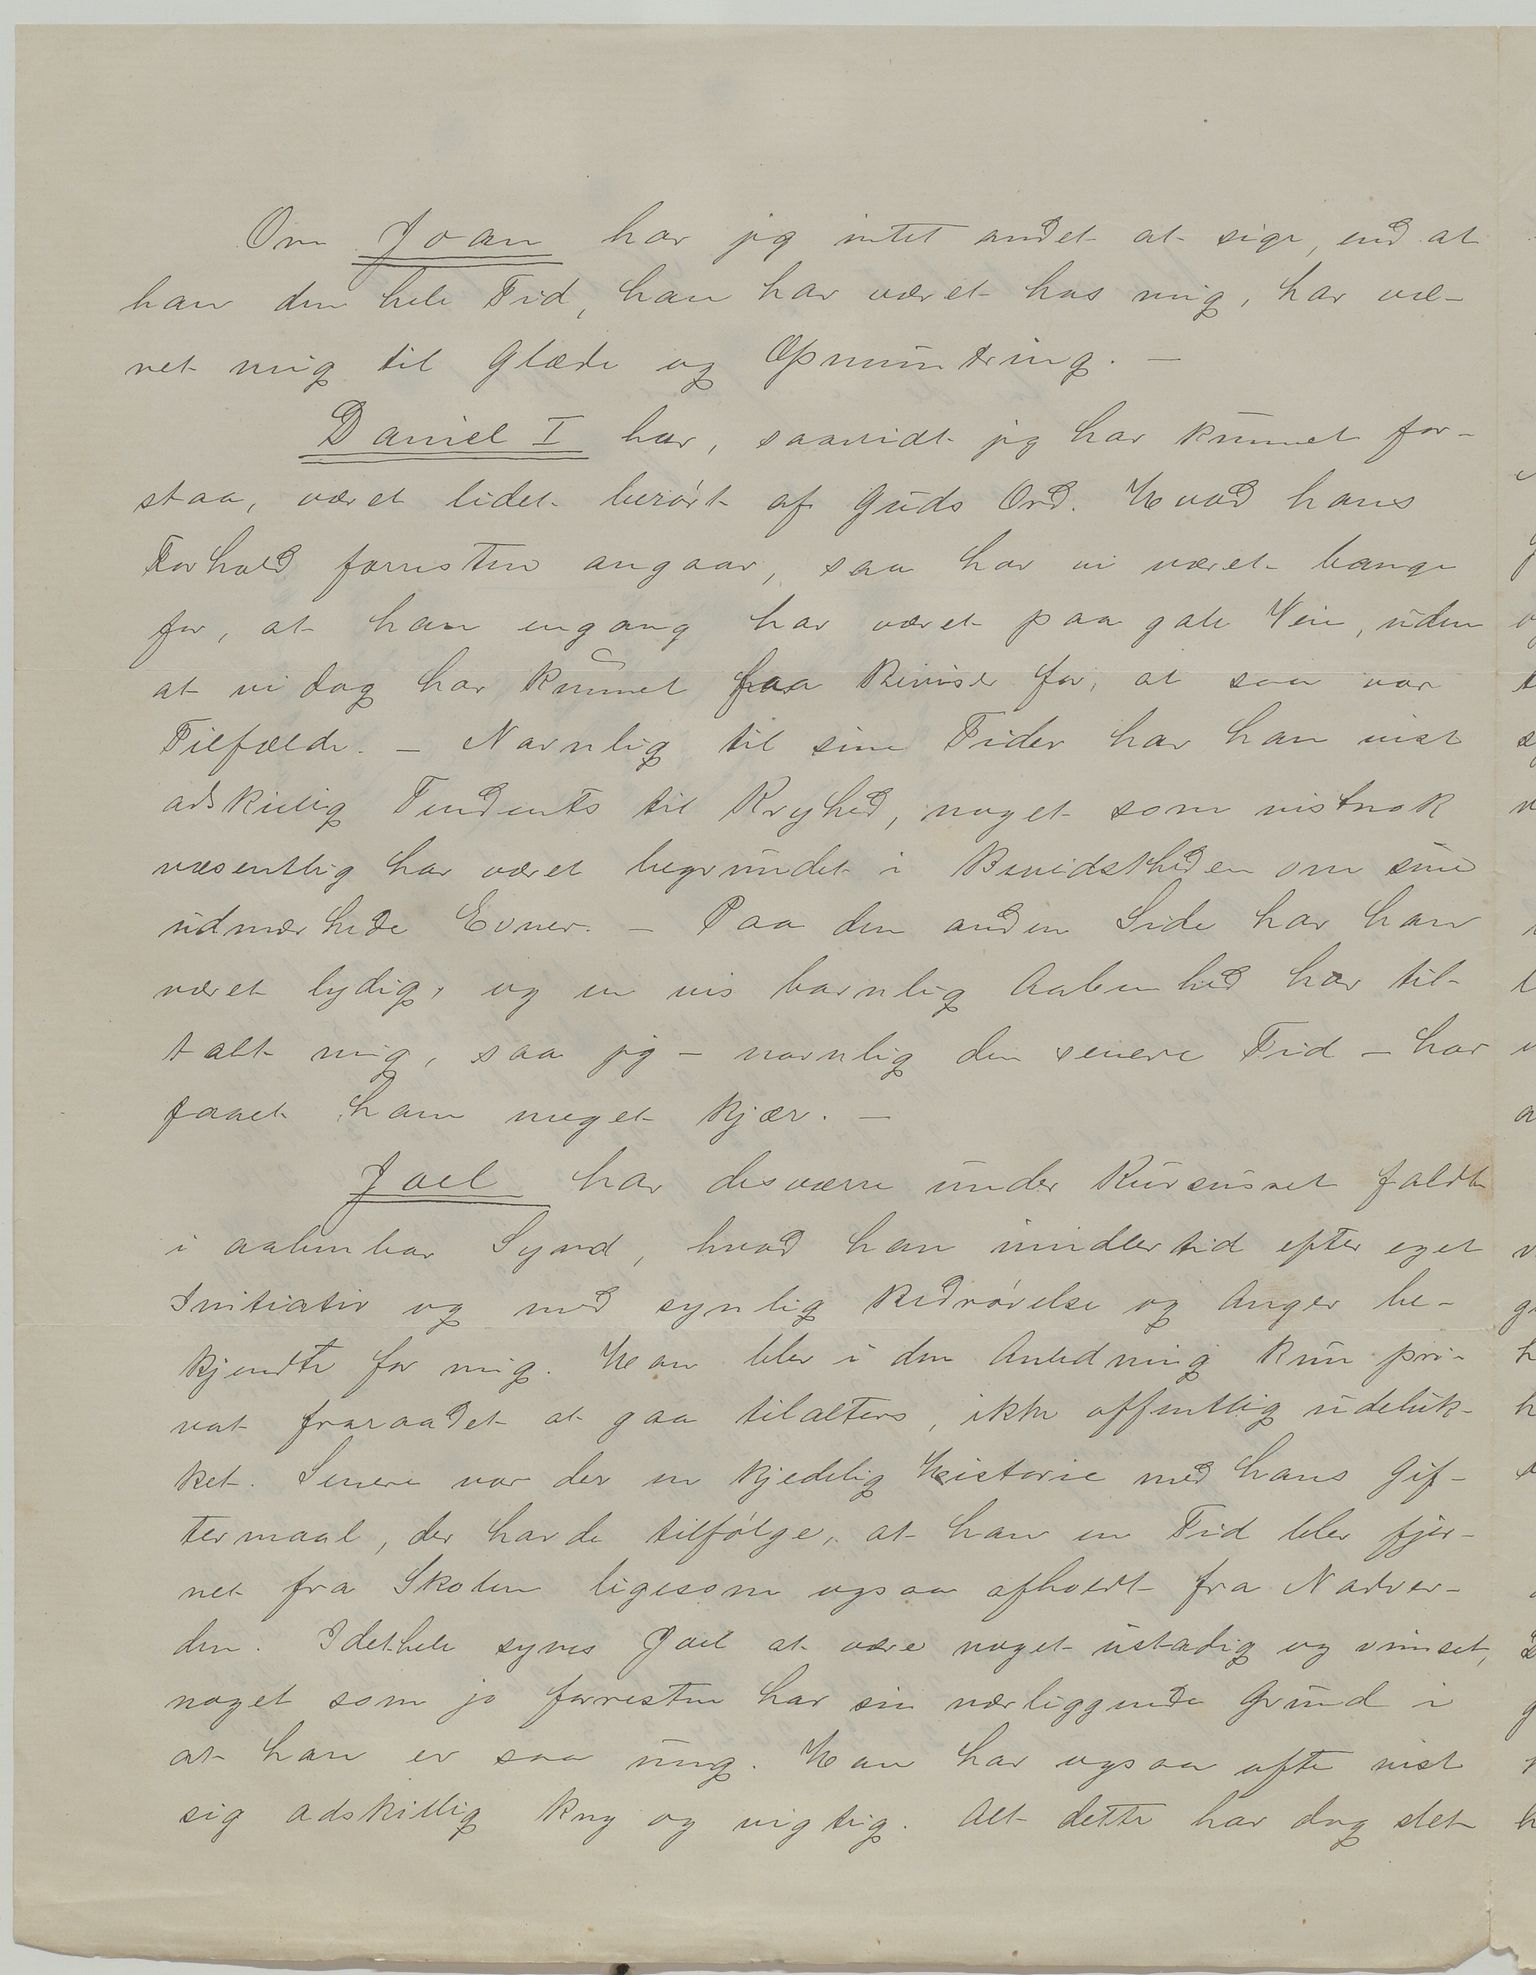 Om Joan har jeg intet andet at sige, end at
han den hele Tid, han har været hos mig, har væ-
ret mig til Glæde og Opmuntring. —
Daniel I har, saavidt jeg har kunnet for-
staa, været lidet berørt af Guds Ord. Hvad hans
Forhold forresten angaar, saa har vi været bange
for, at han engang har været paa gale Veie, uden
at vi dog har kunnet faa Beviser for, at saa var
Tilfældet. — Navnlig til sine Tider har han vist
adskillig Tendents til Kryhed, noget som vistnok
væsentlig har været begrundet i Bevidstheden om sine
udmærkede Evner. — Paa den anden Side har han
været lydig, og en vis barnlig Aabenhed har til-
talt mig, saa jeg — navnlig den senere Tid — har
faaet ham meget kjær. —
Joel har desværre under Kursuset faldt
i aabenbar Synd, hvad han imidlertid efter eget
Initiativ og med synlig Bedrøvelse og Anger be-
kjendte for mig. Han blev i den Anledning kun pri-
vat fraraadet at gaa tilalters, ikke offentlig udeluk-
ket. Senere var der en kjedelig Historie med hans Gif-
termaal, der havde tilfølge, at han en Tid blev fjer-
net fra Skolen ligesom ogsaa afholdt fra Nadver-
den. Idethele synes Joel at være noget ustadig og vimset,
noget som jo forresten har sin nærliggende Grund i
at han er saa ung. Han har ogsaa ofte vist
sig adskillig kry og vigtig. Alt dette har dog slet